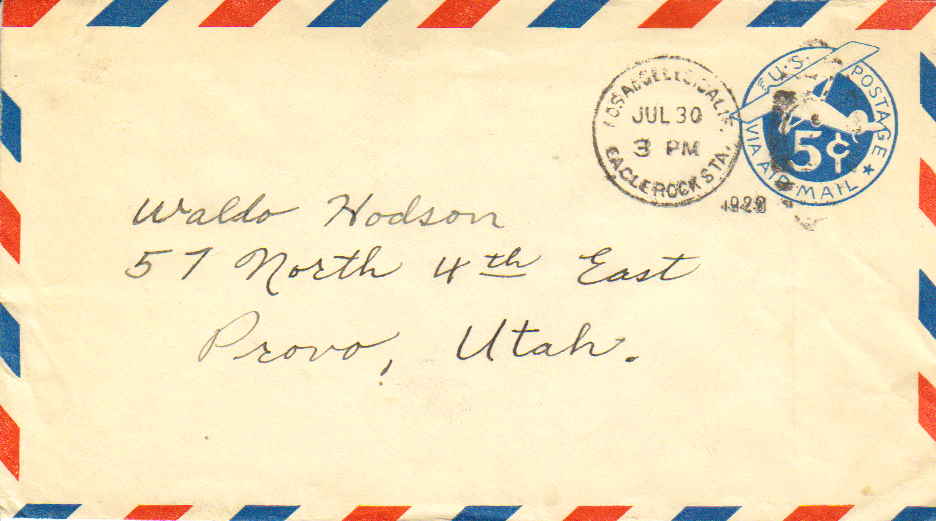 LOS ANGELES, CALIF.
JUL 30
3 PM
EAGLE ROCK STA.
U.S. POSTAGE
5¢
VIA AIR MAIL
Waldo Hodson
57 North 4th East
Provo, Utah.